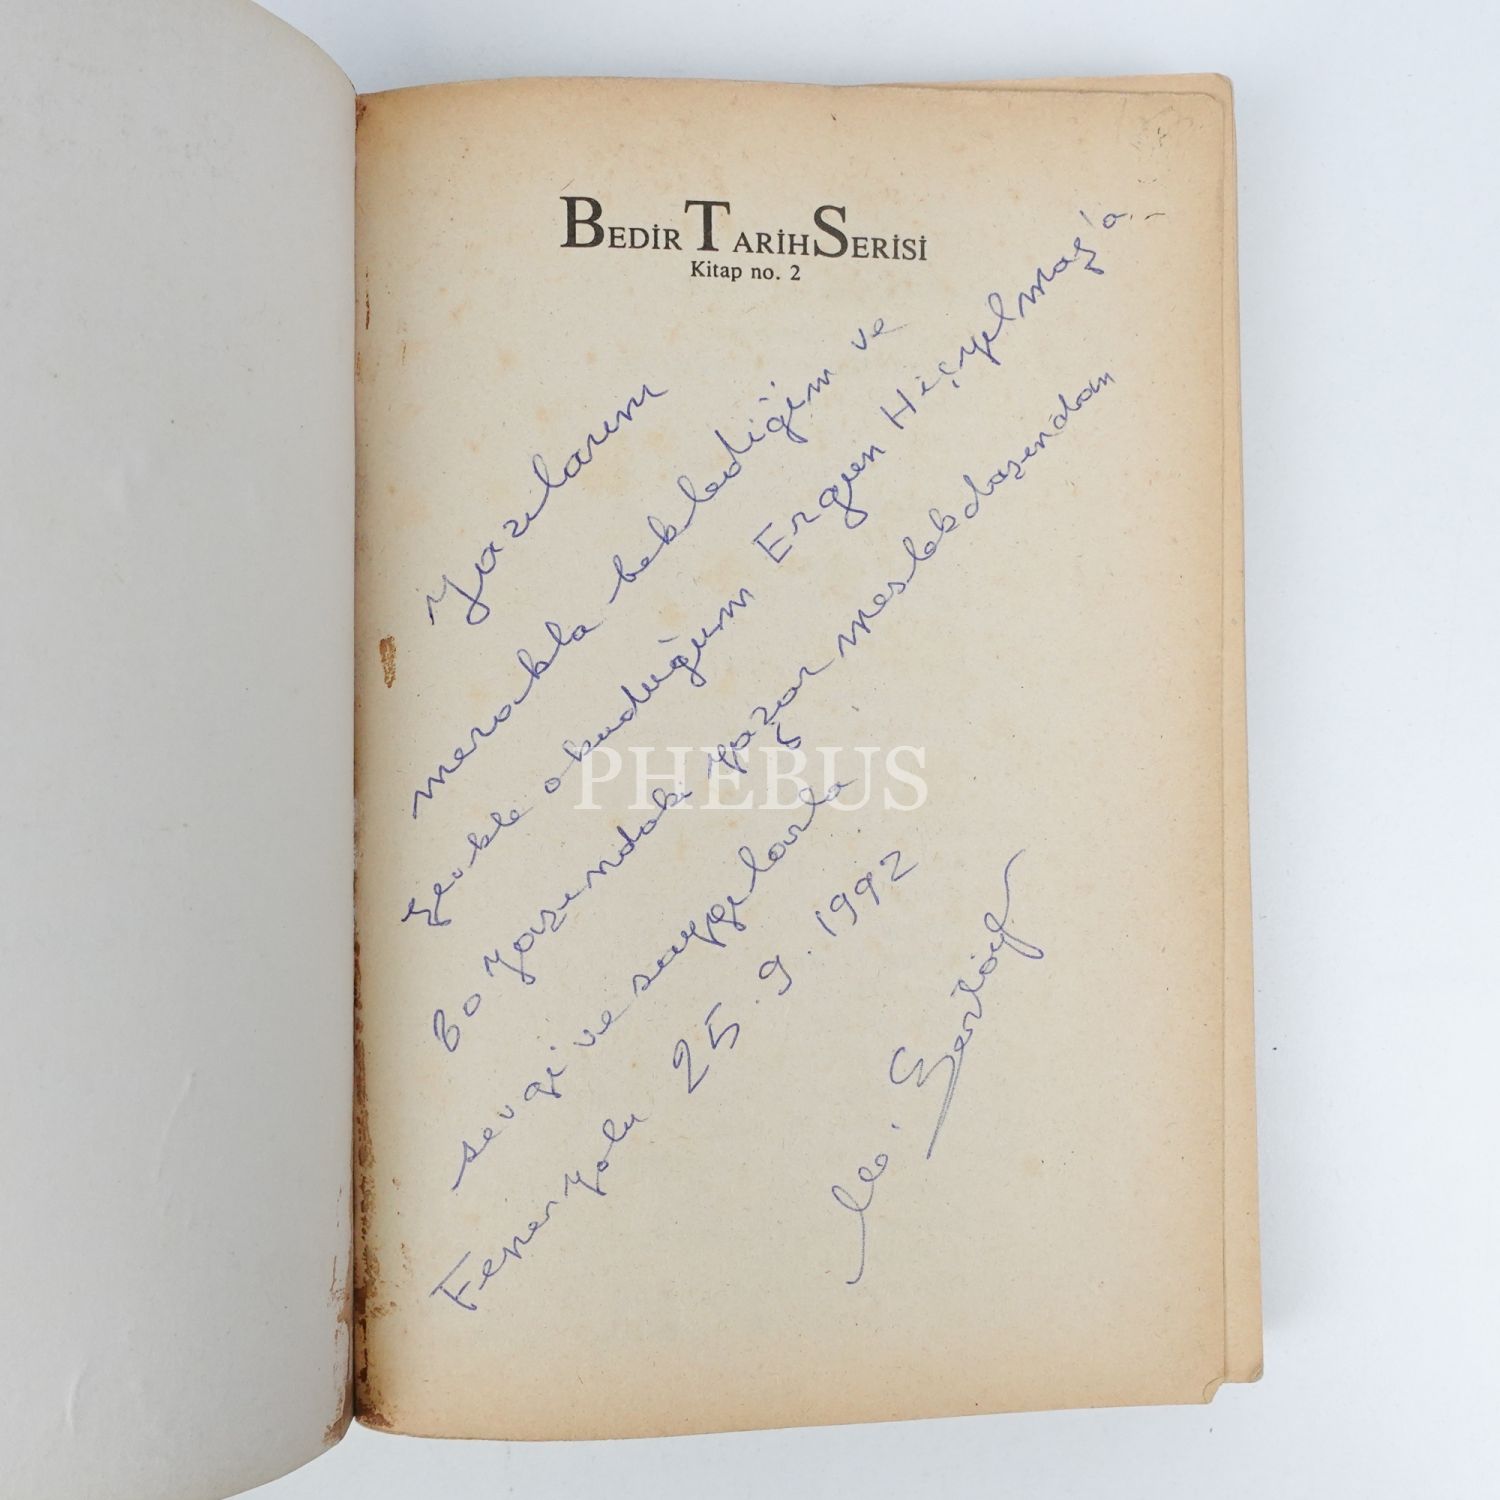 BEDİR TARİH SERİSİ
Kitap no. 2
Yazılarını
merakla beklediğim ve
zevkle okuduğum Ergun Hiçyılmaz'a
80 yaşındaki yazar meslekdaşından
sevgi ve saygılarla
Feneryolu 25.9.1992
M. Sertoğlu
PHEBUS